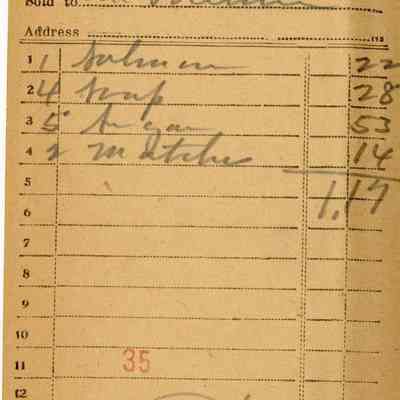 Sold to
Address
1 1 Salmon 22
2 4 Soap 28
3 5 Sugar 53
4 2 Matches 14
5 1.17
6
7
8
9
10
11 35
12